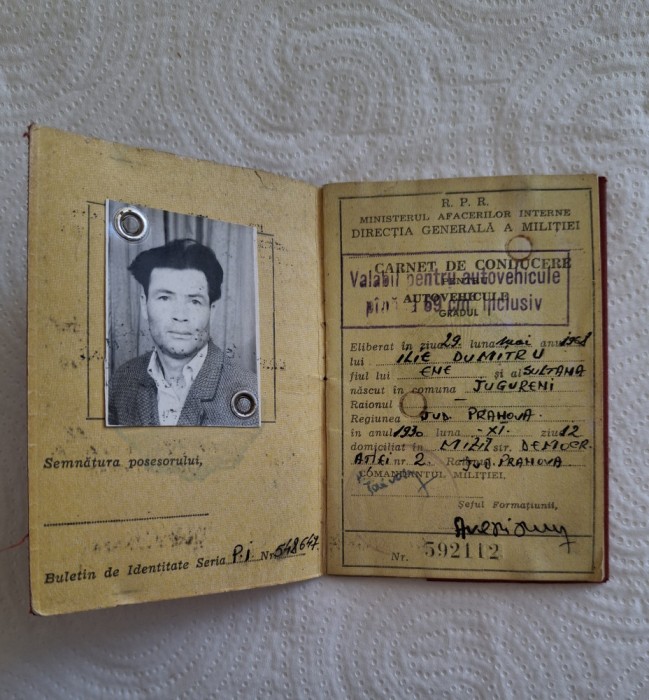 Semnătura posesorului,
Buletin de Identitate Seria P.j Nr. 548647.
R. P. R.
MINISTERUL AFACERILOR INTERNE
DIRECȚIA GENERALĂ A MILIȚIEI
CARNET DE CONDUCERE
Valabil pentru autovehicule
PENTRU
AUTOVEHICULE
69 cm inclusiv
GRADUL
Eliberat în ziua 29 luna mai anul 1968
lui ILIE DUMITRU
fiul lui ENE și al SULTANA
născut în comuna JUGURENI
Raionul —
Regiunea JUD. PRAHOVA.
în anul 1930 luna -XI. ziua 12
domiciliat în MIZIL str. DEMOCR.
AȚIEI nr. 2. JUD. PRAHOVA
COMANDANTUL MILIȚIEI,
Șeful Formațiunii,
Nr. 592112